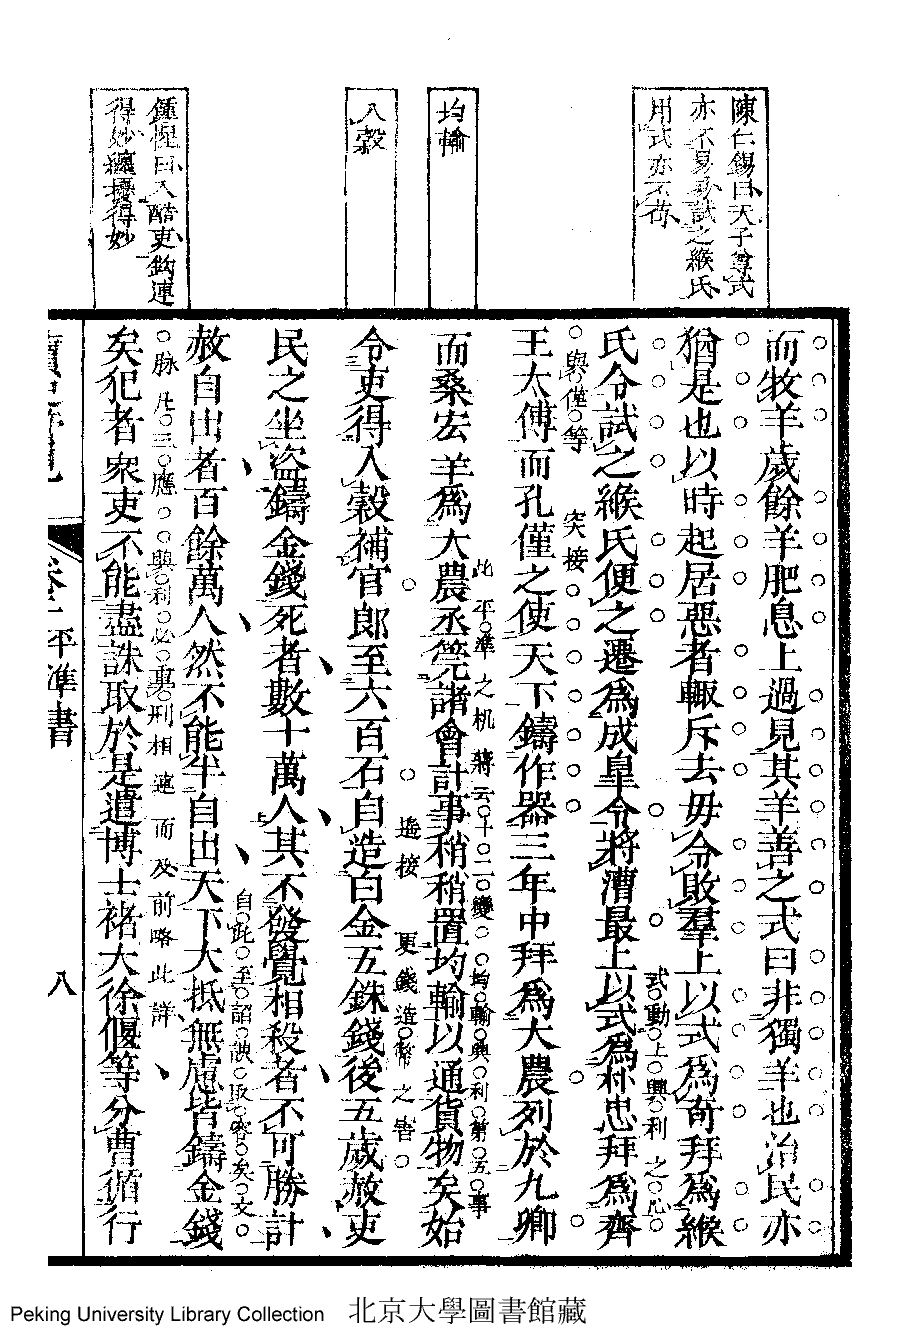 陳仁錫曰天子尊式
亦不易易試之緱氏
用式亦不苟
均輸
入穀
鍾惺曰入酷吏鉤連
得妙纏擾得妙
而牧羊歲餘羊肥息上過見其羊善之式曰非獨羊也治民亦
猶是也以時起居惡者輙斥去毋令敗羣上以式爲奇拜爲緱
式動上興利之心
氏令試之緱氏便之遷爲成臯令將漕最上以式爲朴忠拜爲齊
與僅等
突接
王太傅而孔僅之使天下鑄作器三年中拜爲大農列於九卿
此平準之机蔣云十二變
均輸興利第五事
而桑宏羊爲大農丞筦諸會計事稍稍置均輸以通貨物矣始
遥接
更錢造幣之害
令吏得入穀補官郎至六百石自造白金五銖錢後五歲赦吏
民之坐盜鑄金錢死者數十萬人其不發覺相殺者不可勝計
自此至諂諛取容矣文
赦自出者百餘萬人然不能半自出天下大抵無慮皆鑄金錢
脉凡三應
興利必裏刑相連而及前略此詳
矣犯者衆吏不能盡誅取於是遣博士褚大徐偃等分曹循行
平準書
八
Peking University Library Collection 北京大學圖書館藏